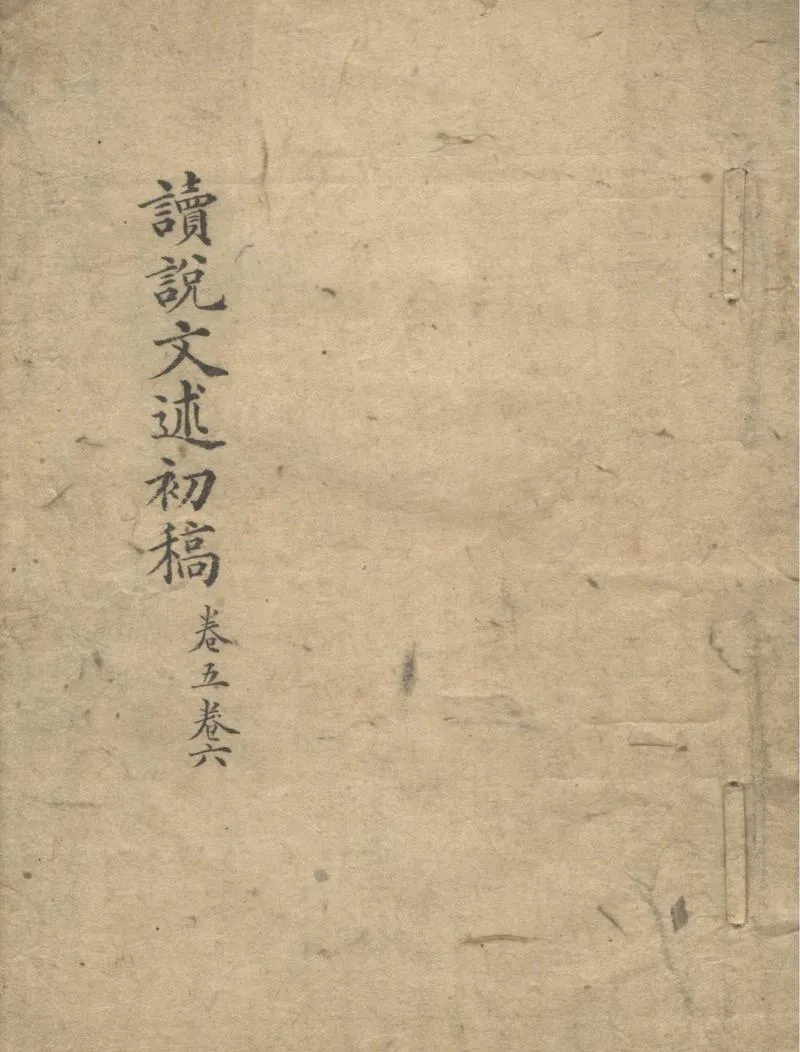 讀說文述初稿
卷五卷六